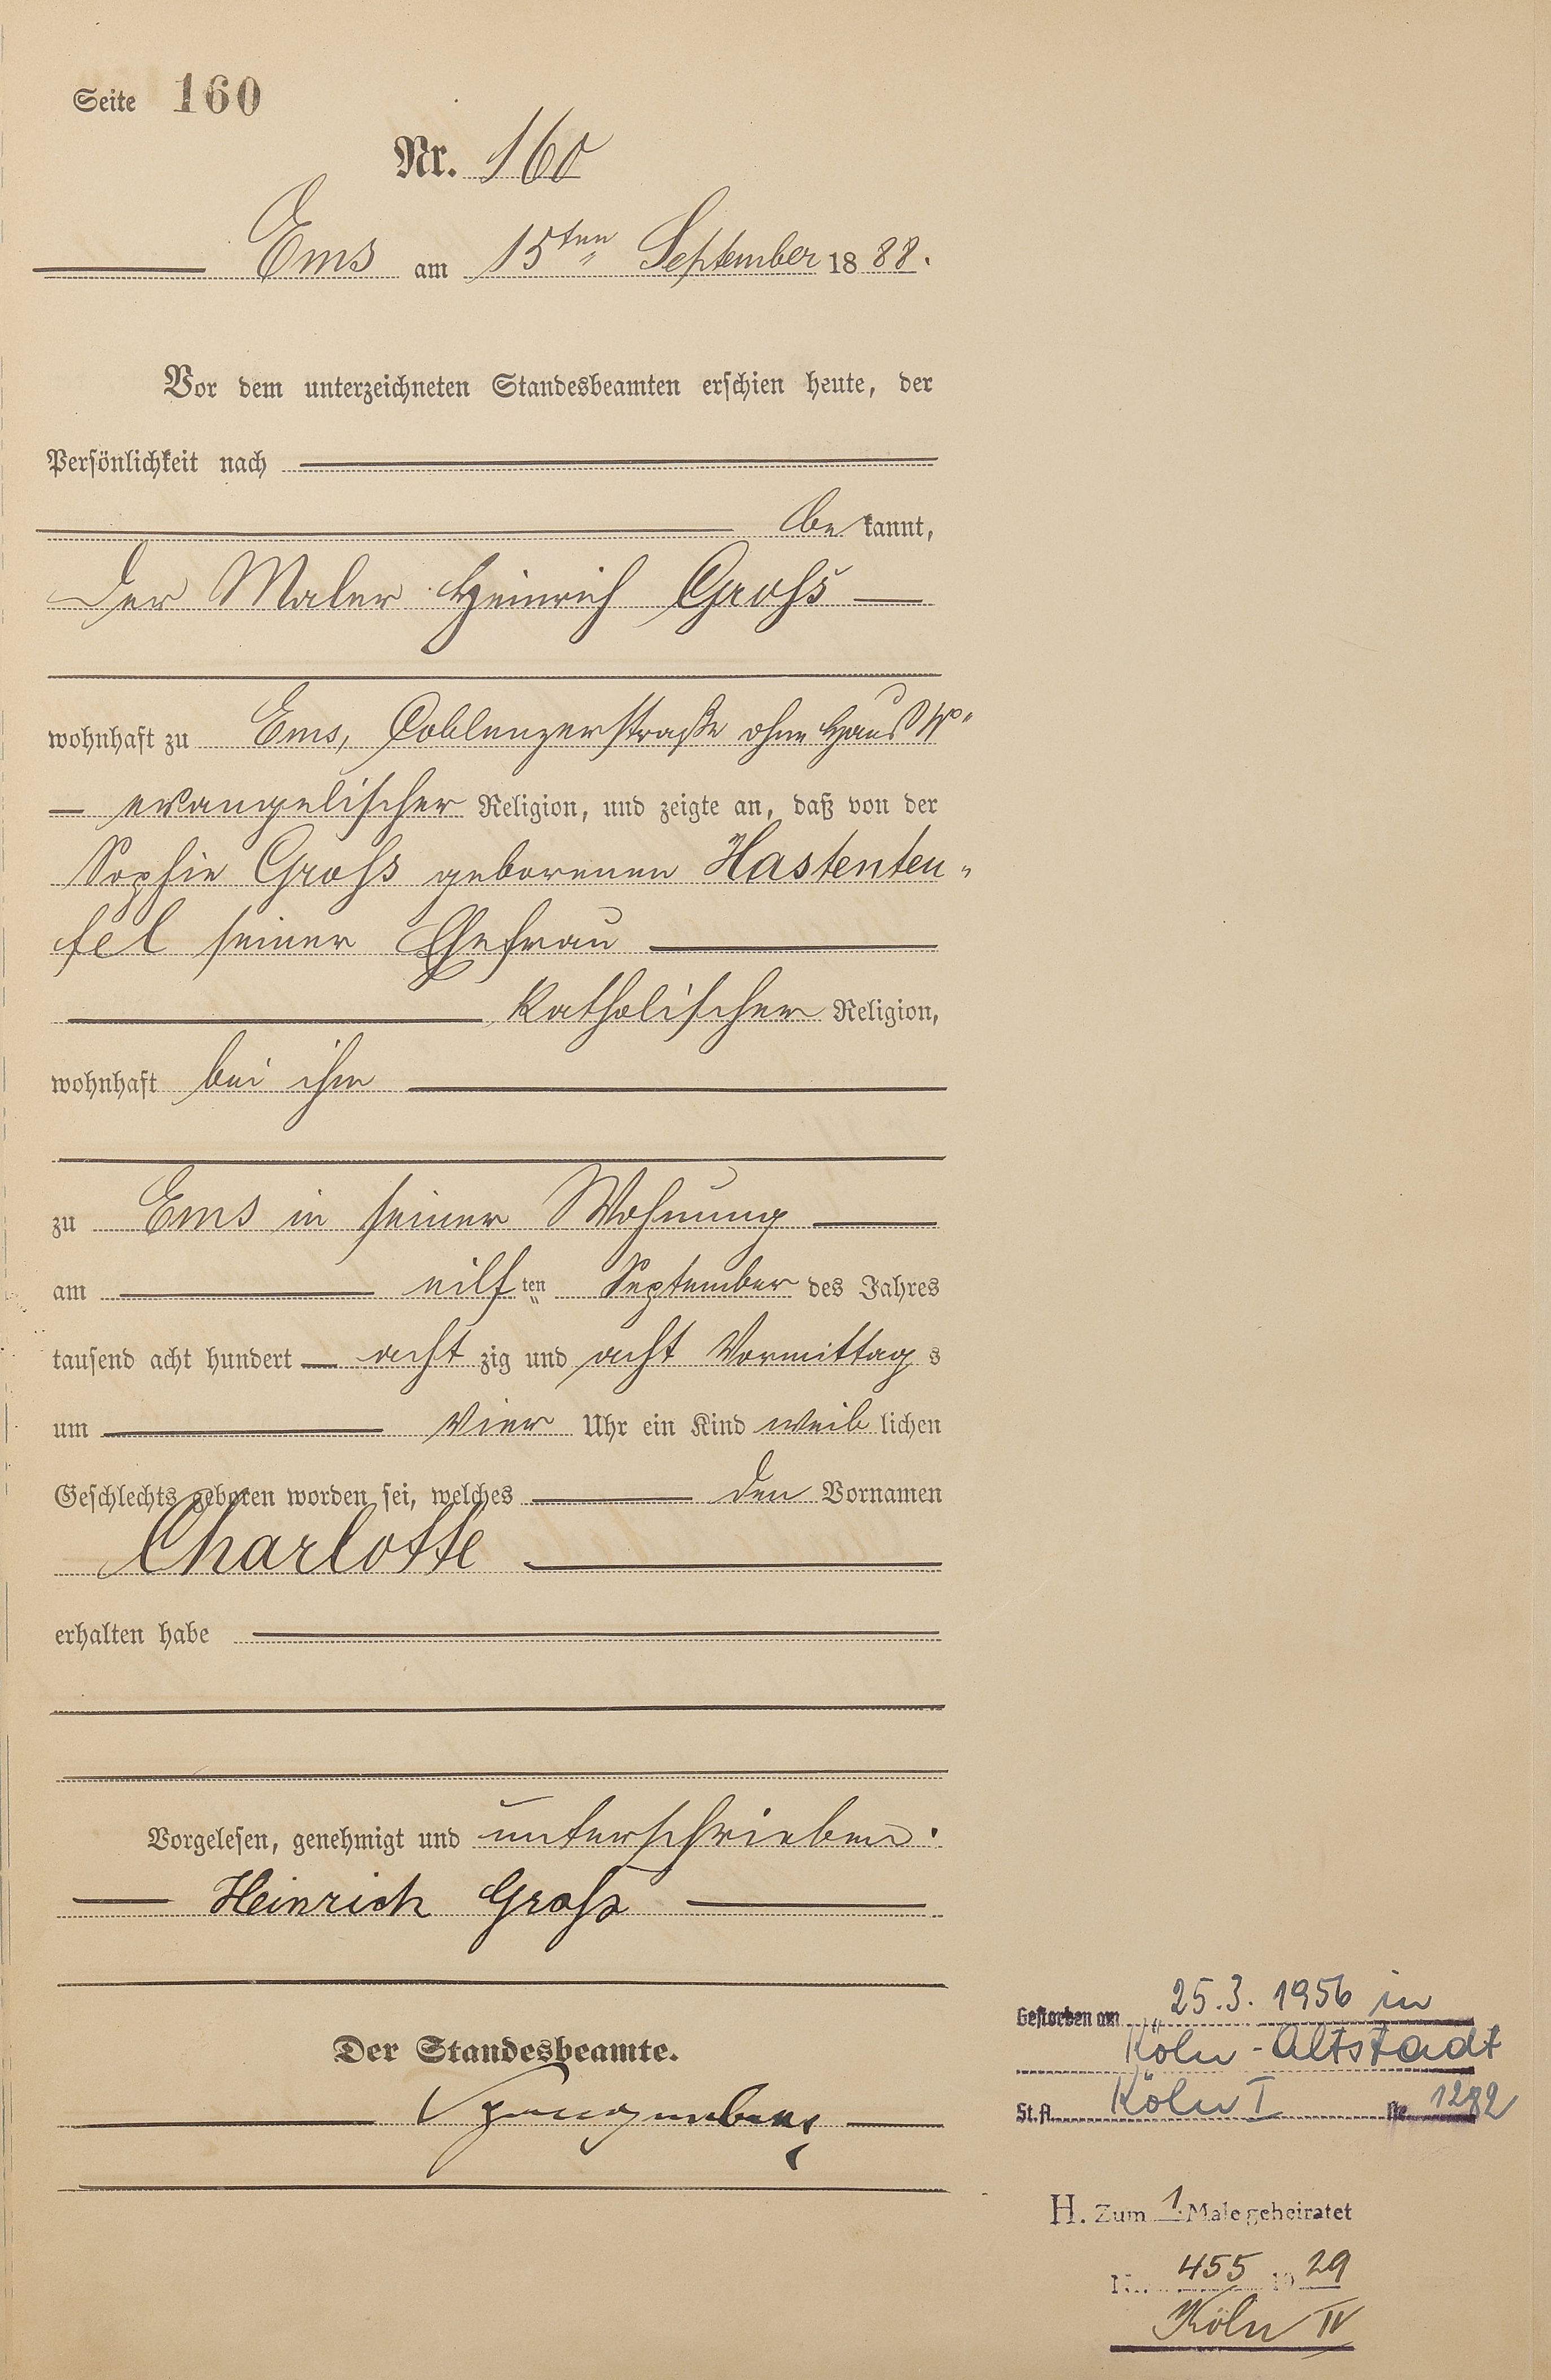 Seite 160
Nr. 160
Ems am 15ten September 1888.
Vor dem unterzeichneten Standesbeamten erschien heute, der
Persönlichkeit nach
bekannt,
der Maler Heinrich Groß
wohnhaft zu Ems, Coblenzerstraße ohne Haus No
evangelischer Religion, und zeigte an, daß von der
Sophie Groß geborenen Hastenteu-
fel seiner Ehefrau
katholischer Religion,
wohnhaft bei ihm
zu Ems in seiner Wohnung
am eilften September des Jahres
tausend acht hundert achtzig und acht Vormittags
um vier Uhr ein Kind weiblichen
Geschlechts geboren worden sei, welches den Vornamen
Charlotte
erhalten habe
Vorgelesen, genehmigt und unterschrieben.
Heinrich Groß
Der Standesbeamte.
Gestorben am 25.3.1956 in
Köln-Altstadt
St.A. Köln I Nr. 1282
H. Zum 1. Male geheiratet
Nr. 455 1929
Köln IV